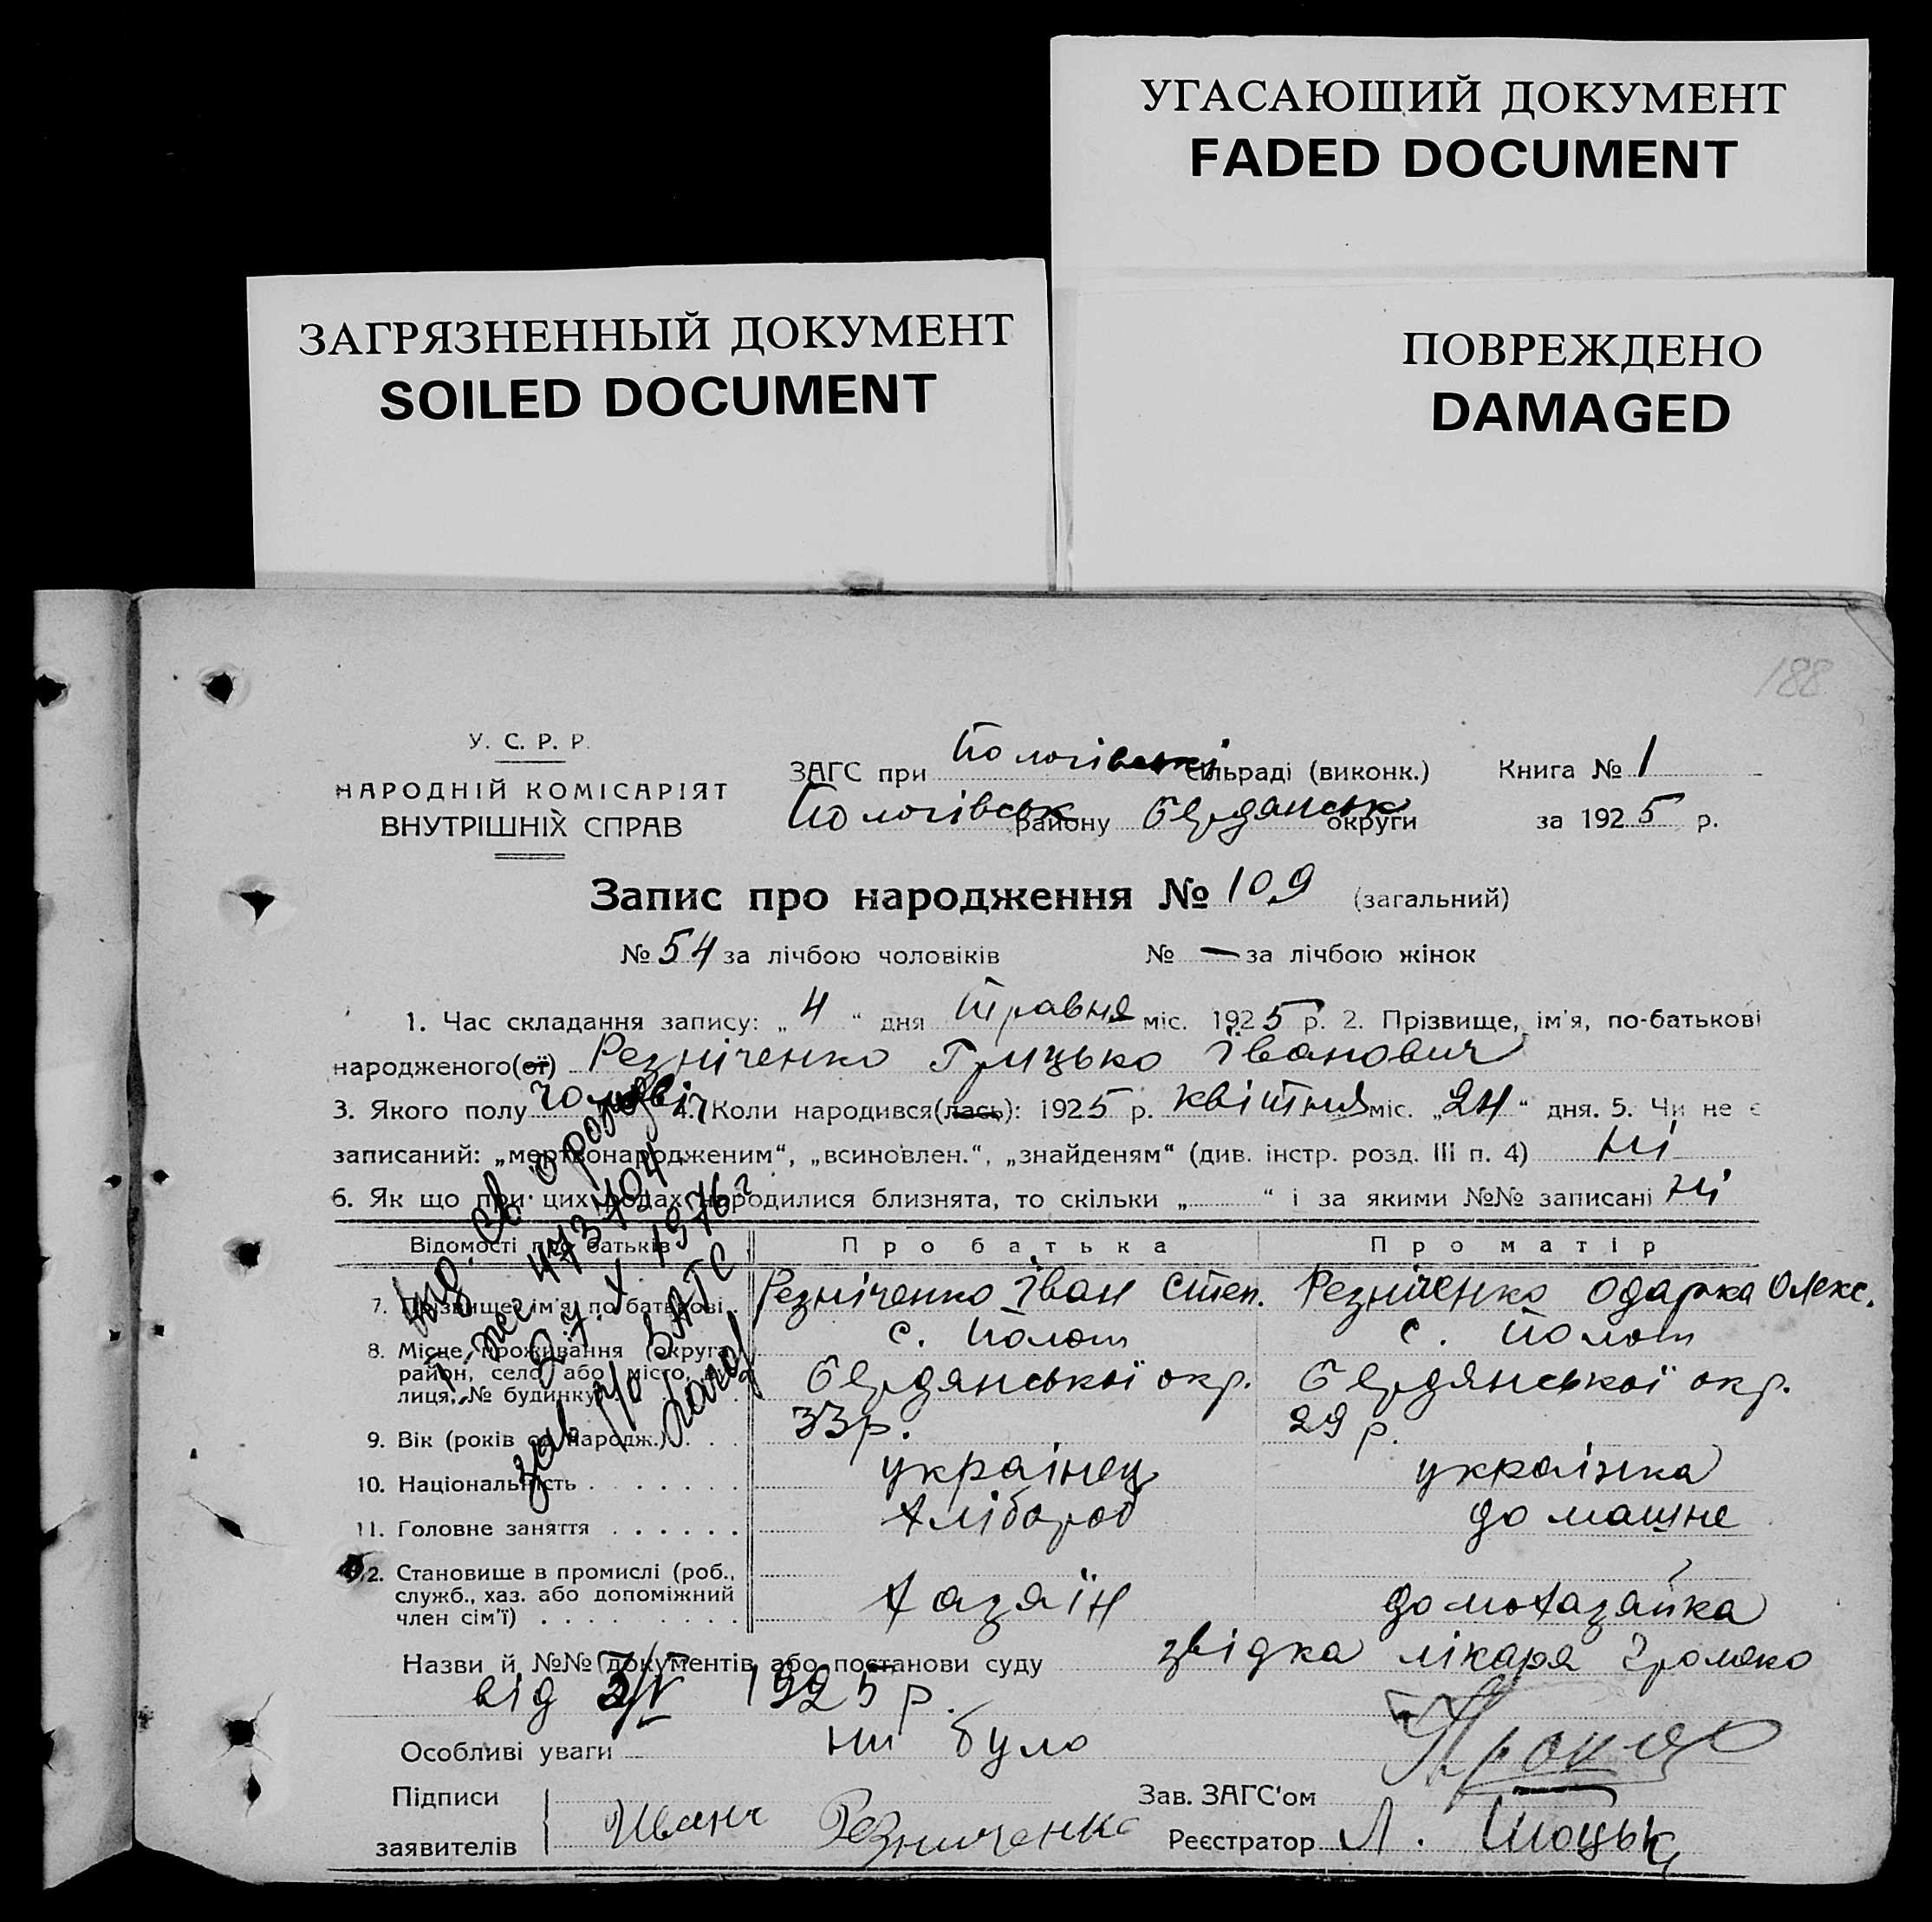 УГАСАЮЩИЙ ДОКУМЕНТ
FADED DOCUMENT
ЗАГРЯЗНЕННЫЙ ДОКУМЕНТ
SOILED DOCUMENT
ПОВРЕЖДЕНО
DAMAGED
188
У. С. Р. Р.
НАРОДНІЙ КОМІСАРІЯТ
ВНУТРІШНІХ СПРАВ
ЗАГС при Пологівські сільраді (виконк.) Книга № 1
Пологівськ району Бердянськ округи за 1925 р.
Запис про народження № 109 (загальний)
№ 54 за лічбою чоловіків № — за лічбою жінок
1. Час складання запису: „4“ дня травня міс. 1925 р. 2. Прізвище, ім'я, по-батькові
народженого(ої) Резніченко Грицько Іванович
3. Якого полу чоловіч 4. Коли народився(лась): 1925 р. квітня міс. „24“ дня. 5. Чи не є
записаний: „мертвонародженим“, „всиновлен.“, „знайденям“ (див. інстр. розд. III п. 4) ні
6. Як що при цих родах народилися близнята, то скільки „ “ і за якими №№ записані ні
Відомості про батьків Про батька Про матір
7. Прізвище, ім'я, по батькові Резніченко Іван Степ. Резніченко Одарка Олекс.
8. Місце проживання (округа, район, село або місто, вулиця, № будинку) с. Пологи Бердянської окр. с. Пологи Бердянської окр.
9. Вік (років од народж.) 33 р. 29 р.
10. Національність українец українка
11. Головне заняття хлібороб домашне
12. Становище в промислі (роб., служб., хаз. або допоміжний член сім'ї) хазяїн домохазяйка
473704
27.X.1976 г
зав ЗАГС
Назви й №№ документів або постанови суду звідка лікаря Громяко
від 3/V 1925 р.
Особливі уваги ни було
Підписи
заявителів Иван Резниченко
Зав. ЗАГС'ом
Реєстратор Л.